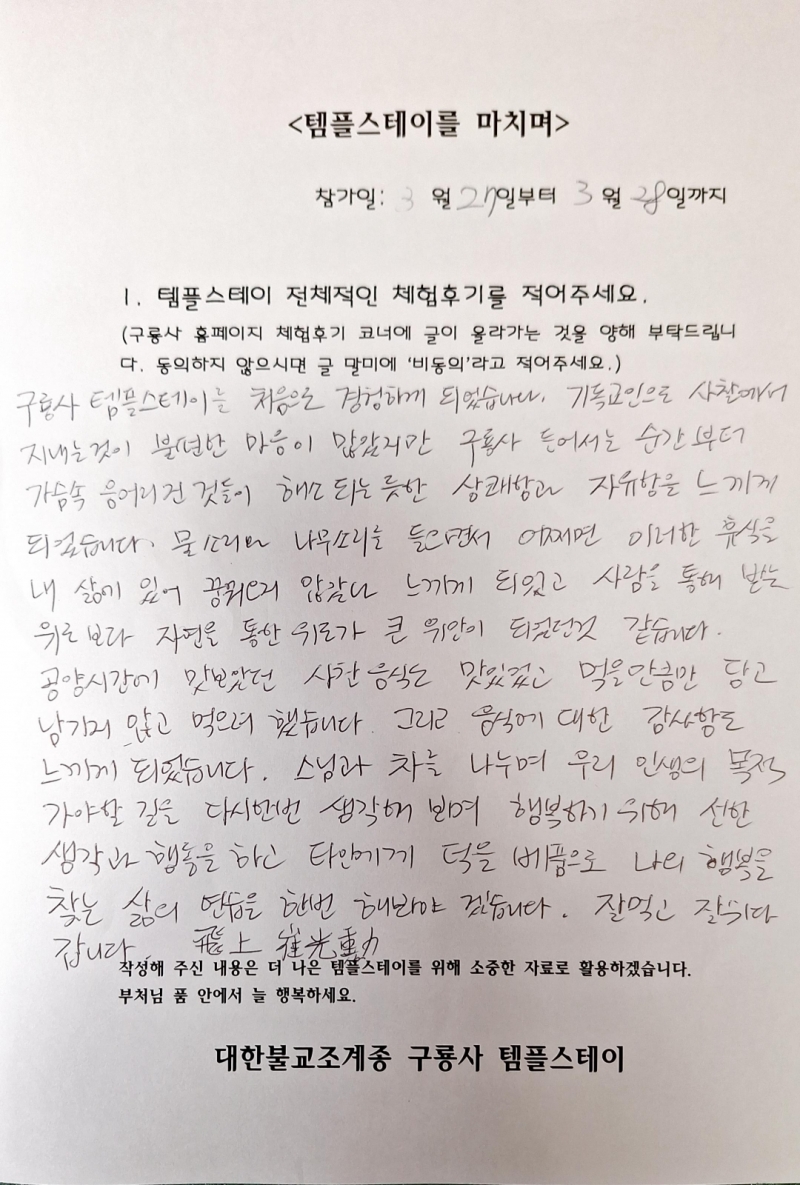 <템플스테이를 마치며>
참가일: 3 월 27일부터 3 월 28일까지
1. 템플스테이 전체적인 체험후기를 적어주세요.
(구룡사 홈페이지 체험후기 코너에 글이 올라가는 것을 양해 부탁드립니
다. 동의하지 않으시면 글 말미에 '비동의'라고 적어주세요.)
구룡사 템플스테이를 처음으로 경험하게 되었습니다. 기독교인으로 사찰에서
지내는것이 불편한 마음이 많았지만 구룡사 들어서는 순간부터
가슴속 응어리진 것들이 해소 되는 듯한 상쾌함과 자유함을 느끼게
되었습니다. 물소리와 나무소리를 들으면서 어쩌면 이러한 휴식을
내 삶에 있어 꿈꿔오지 않았나 느끼게 되었고 사람을 통해 받는
위로보다 자연을 통한 위로가 큰 위안이 되었던것 같습니다.
공양시간에 맛보았던 사찰음식도 맛있었고 먹을만큼만 담고
남기지 않고 먹으려 했습니다. 그리고 음식에 대한 감사함도
느끼게 되었습니다. 스님과 차를 나누며 우리 인생의 목적
가야할 길을 다시한번 생각해 보며 행복하기 위해 선한
생각과 행동을 하고 타인에게 덕을 베품으로 나의 행복을
찾는 삶의 연습을 한번 해봐야 겠습니다. 잘먹고 잘쉬다
갑니다. 飛上 崔光動
작성해 주신 내용은 더 나은 템플스테이를 위해 소중한 자료로 활용하겠습니다.
부처님 품 안에서 늘 행복하세요.
대한불교조계종 구룡사 템플스테이